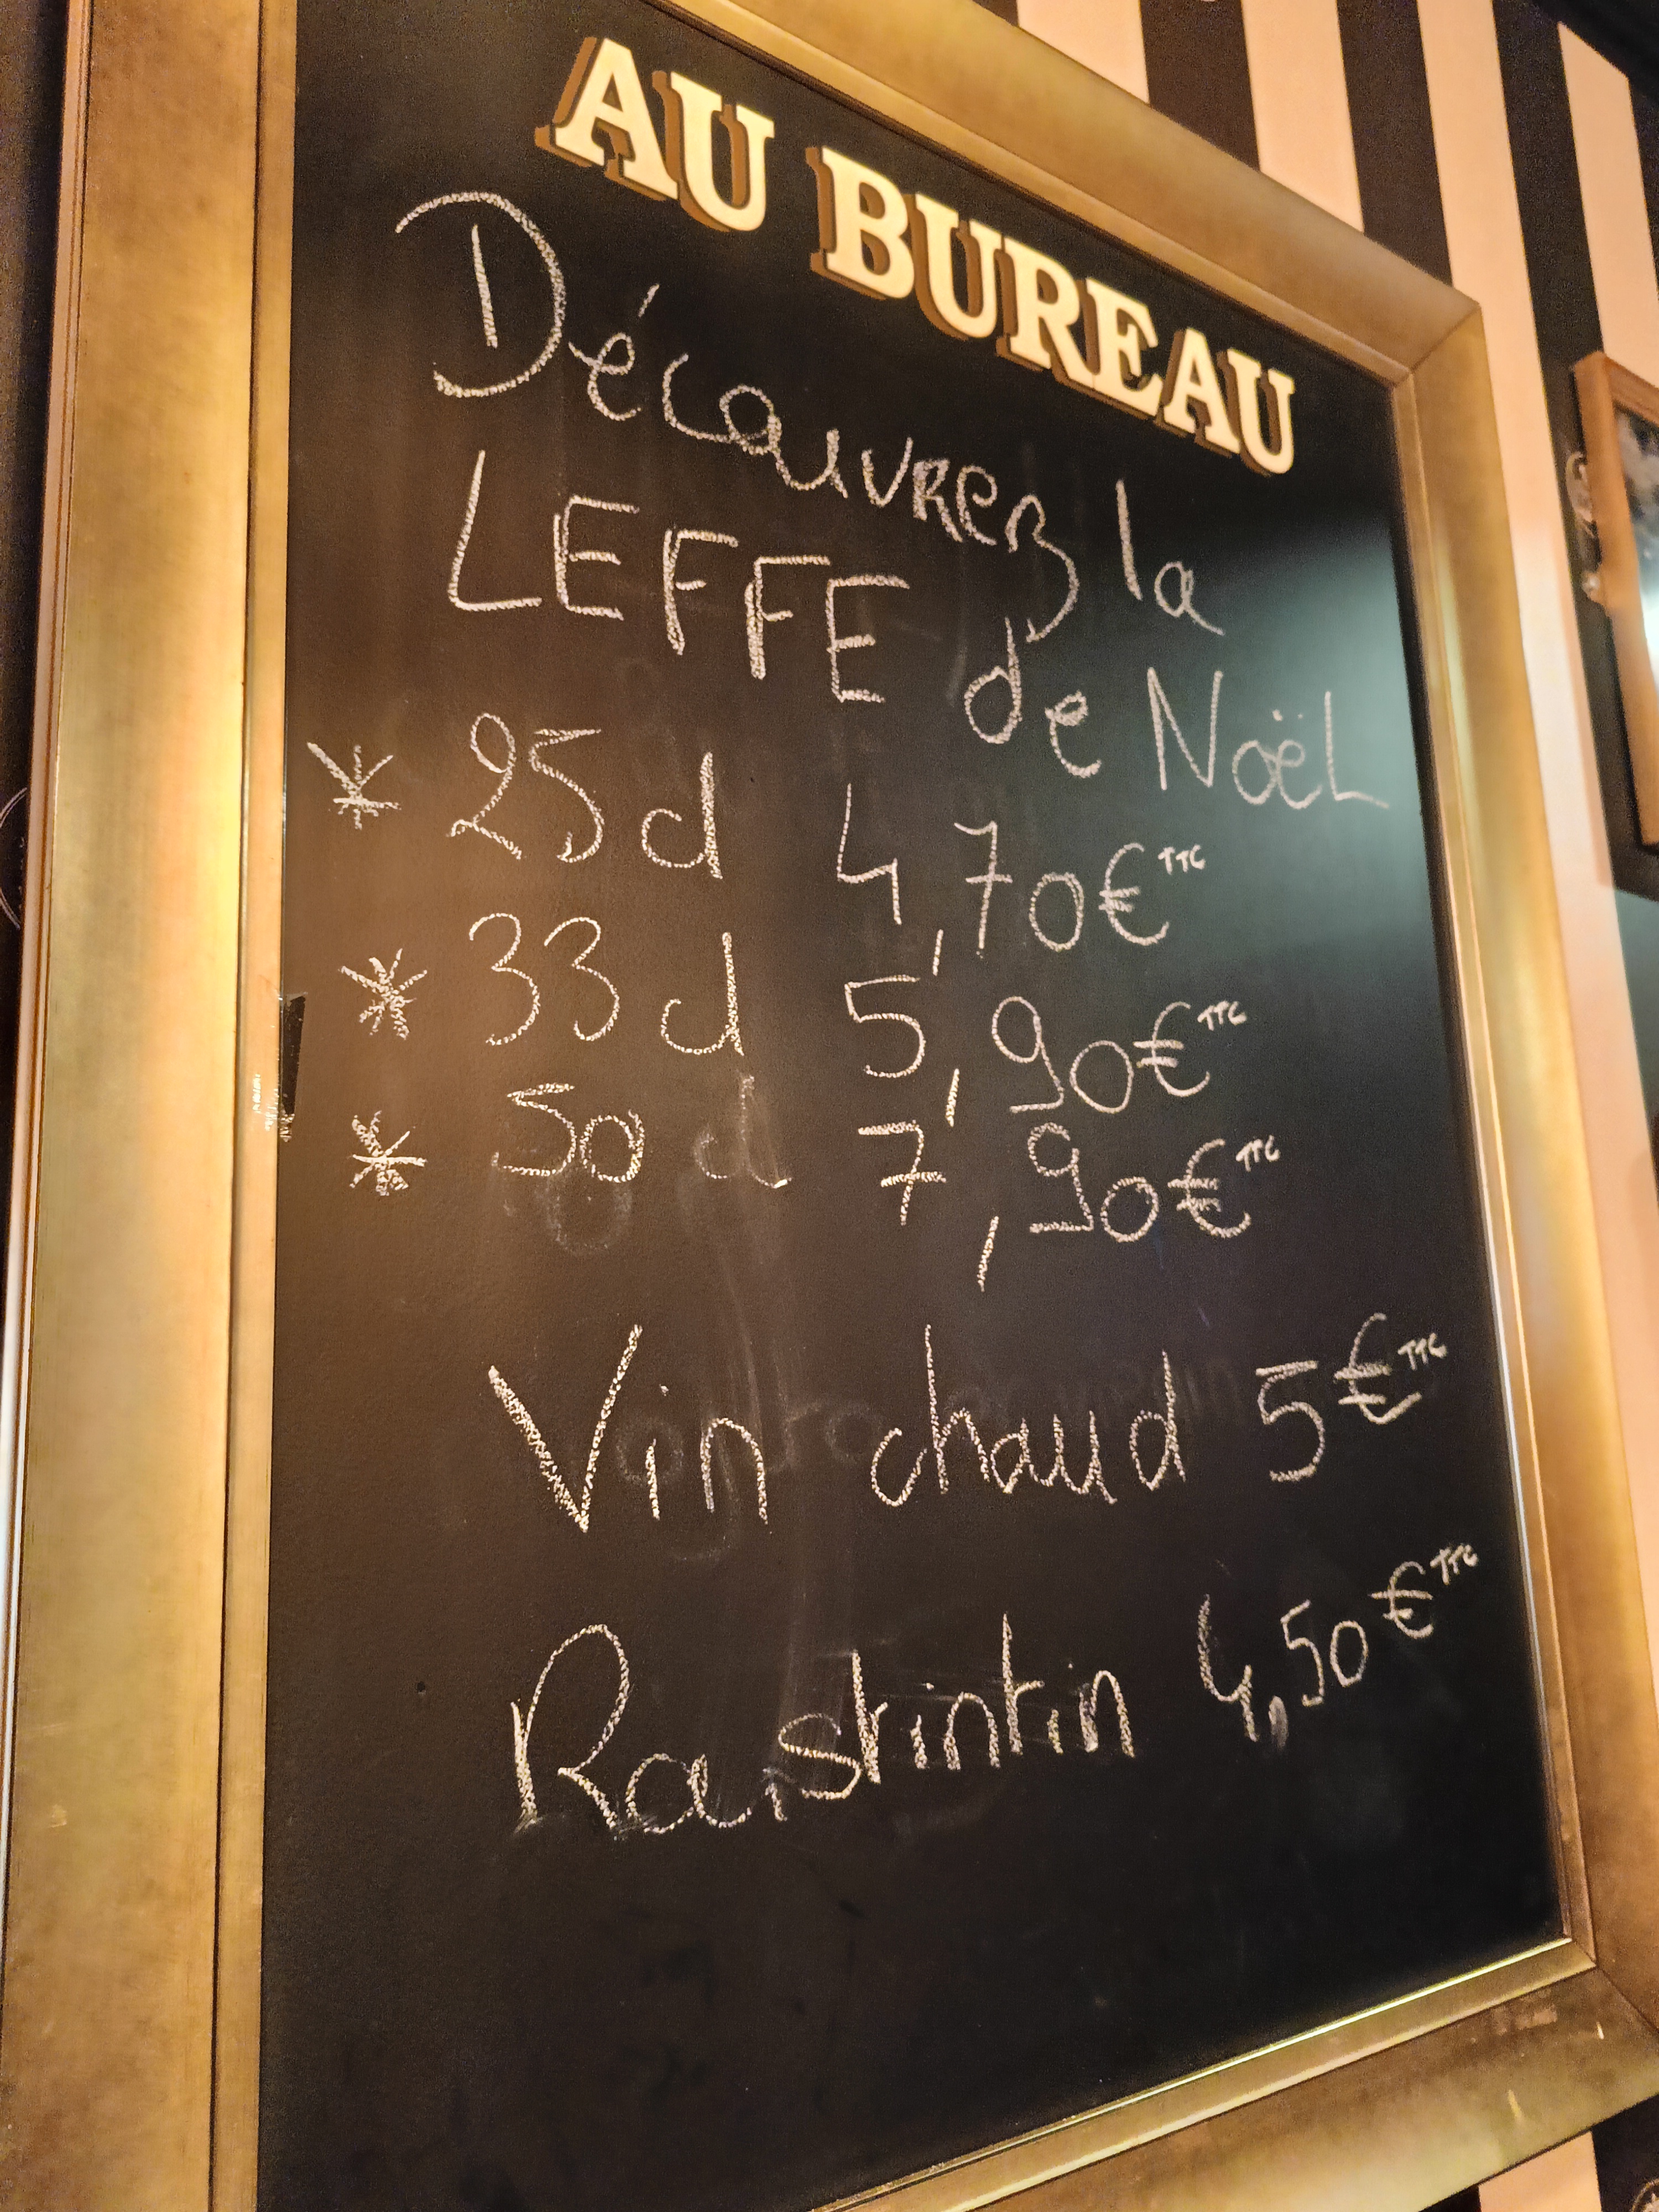 AU BUREAU
Découvrez la
LEFFE de Noël
* 25 cl 4,70€ TTC
* 33 cl 5,90€ TTC
* 50 cl 7,90€ TTC
Vin chaud 5€ TTC
4,50€ TTC